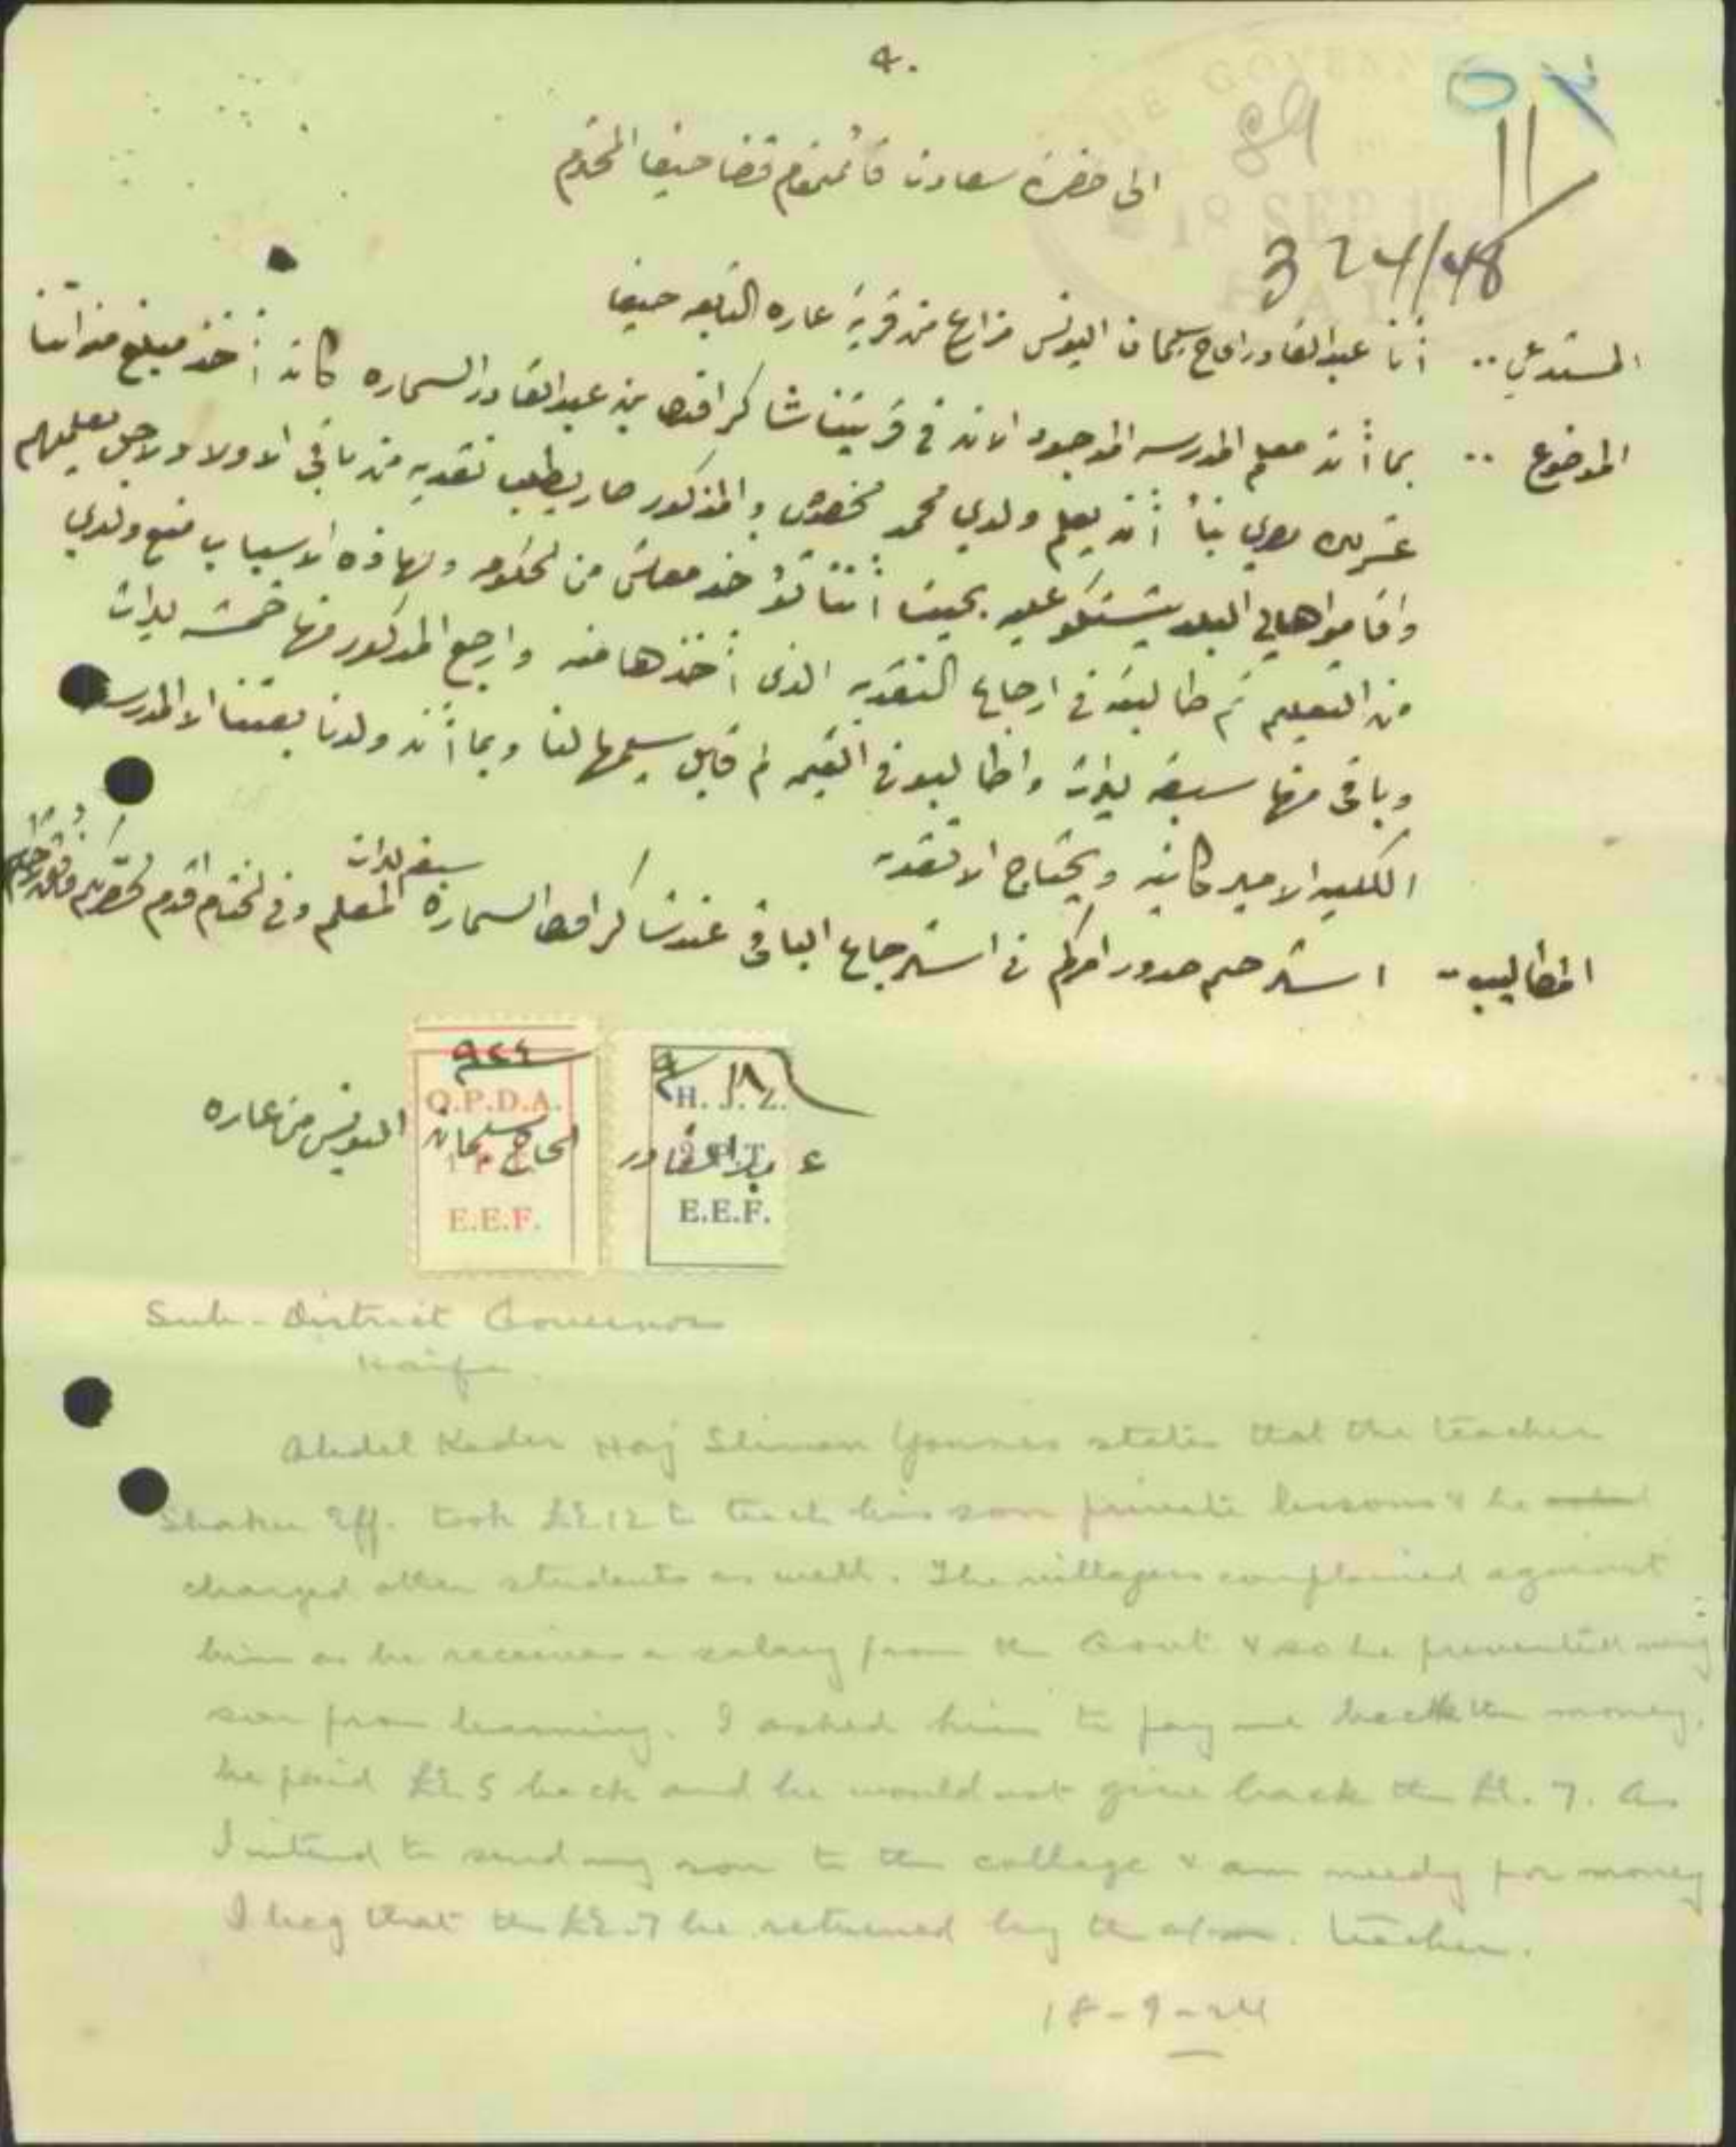 ٩٠
84
11
324/48
18 SEP
الى حضرة سعادت قائمقام قضا حيفا المحترم
المستدعي .. أنا عبدالقادر الحاج سليمان اليونس مزارع من قرية عاره التابعه حيفا
الموضوع .. بما أنه معلم المدرسه الموجود الان في قريتنا شاكر افندي بن عبدالقادر السماره كان أخذ مبلغ من اتنا
عشر ليره مصري بنأ أن يعلم ولدي محمد خصوصي والمذكور صار يطلب نقديه من باقي الاولاد ولاجل تعليمهم
واقاموا اهالي البلد يشتكو عليه بحيث أننا نؤخذ معاش من الحكومه ولهاذه الاسباب منع ولدي
من التعليم ثم طالبته في ارجاع النقديه الذي أخذها منه وارجع المذكور منها خمسة ليرات
وباقي منها سبعة ليرات واطالبو في القيمه لم قابل يسلمها لنا وبما أنه ولدنا بعتنا الا المدرسه
الكليه الاميركانيه ويحتاج الا نقديه
المطاليب - استرحم صدور امركم في استرجاع الباقي عند شاكر افندي السماره المعلم وفي الختام اقدم لحضرتكم فائق
سبعة ليرات
٩٢٤
٩ ١٨
O.P.D.A.
E.E.F.
H.J.Z.
E.E.F.
عبدالقادر الحاج سليمان اليونس من عاره
Sub-District Governor
Haifa.
Abdel Kader Haj Sliman Younes states that the teacher
Shaker Eff. took £E.12 to teach his son private lessons & he
charged other students as well. The villagers complained against
him as he receives a salary from the Govt & so he prevented my
son from learning. I asked him to pay me back the money,
he paid £E.5 back and he would not give back the £E.7. As
I intend to send my son to the college & am needy for money
I beg that the £E.7 be returned by the teacher.
18-9-24